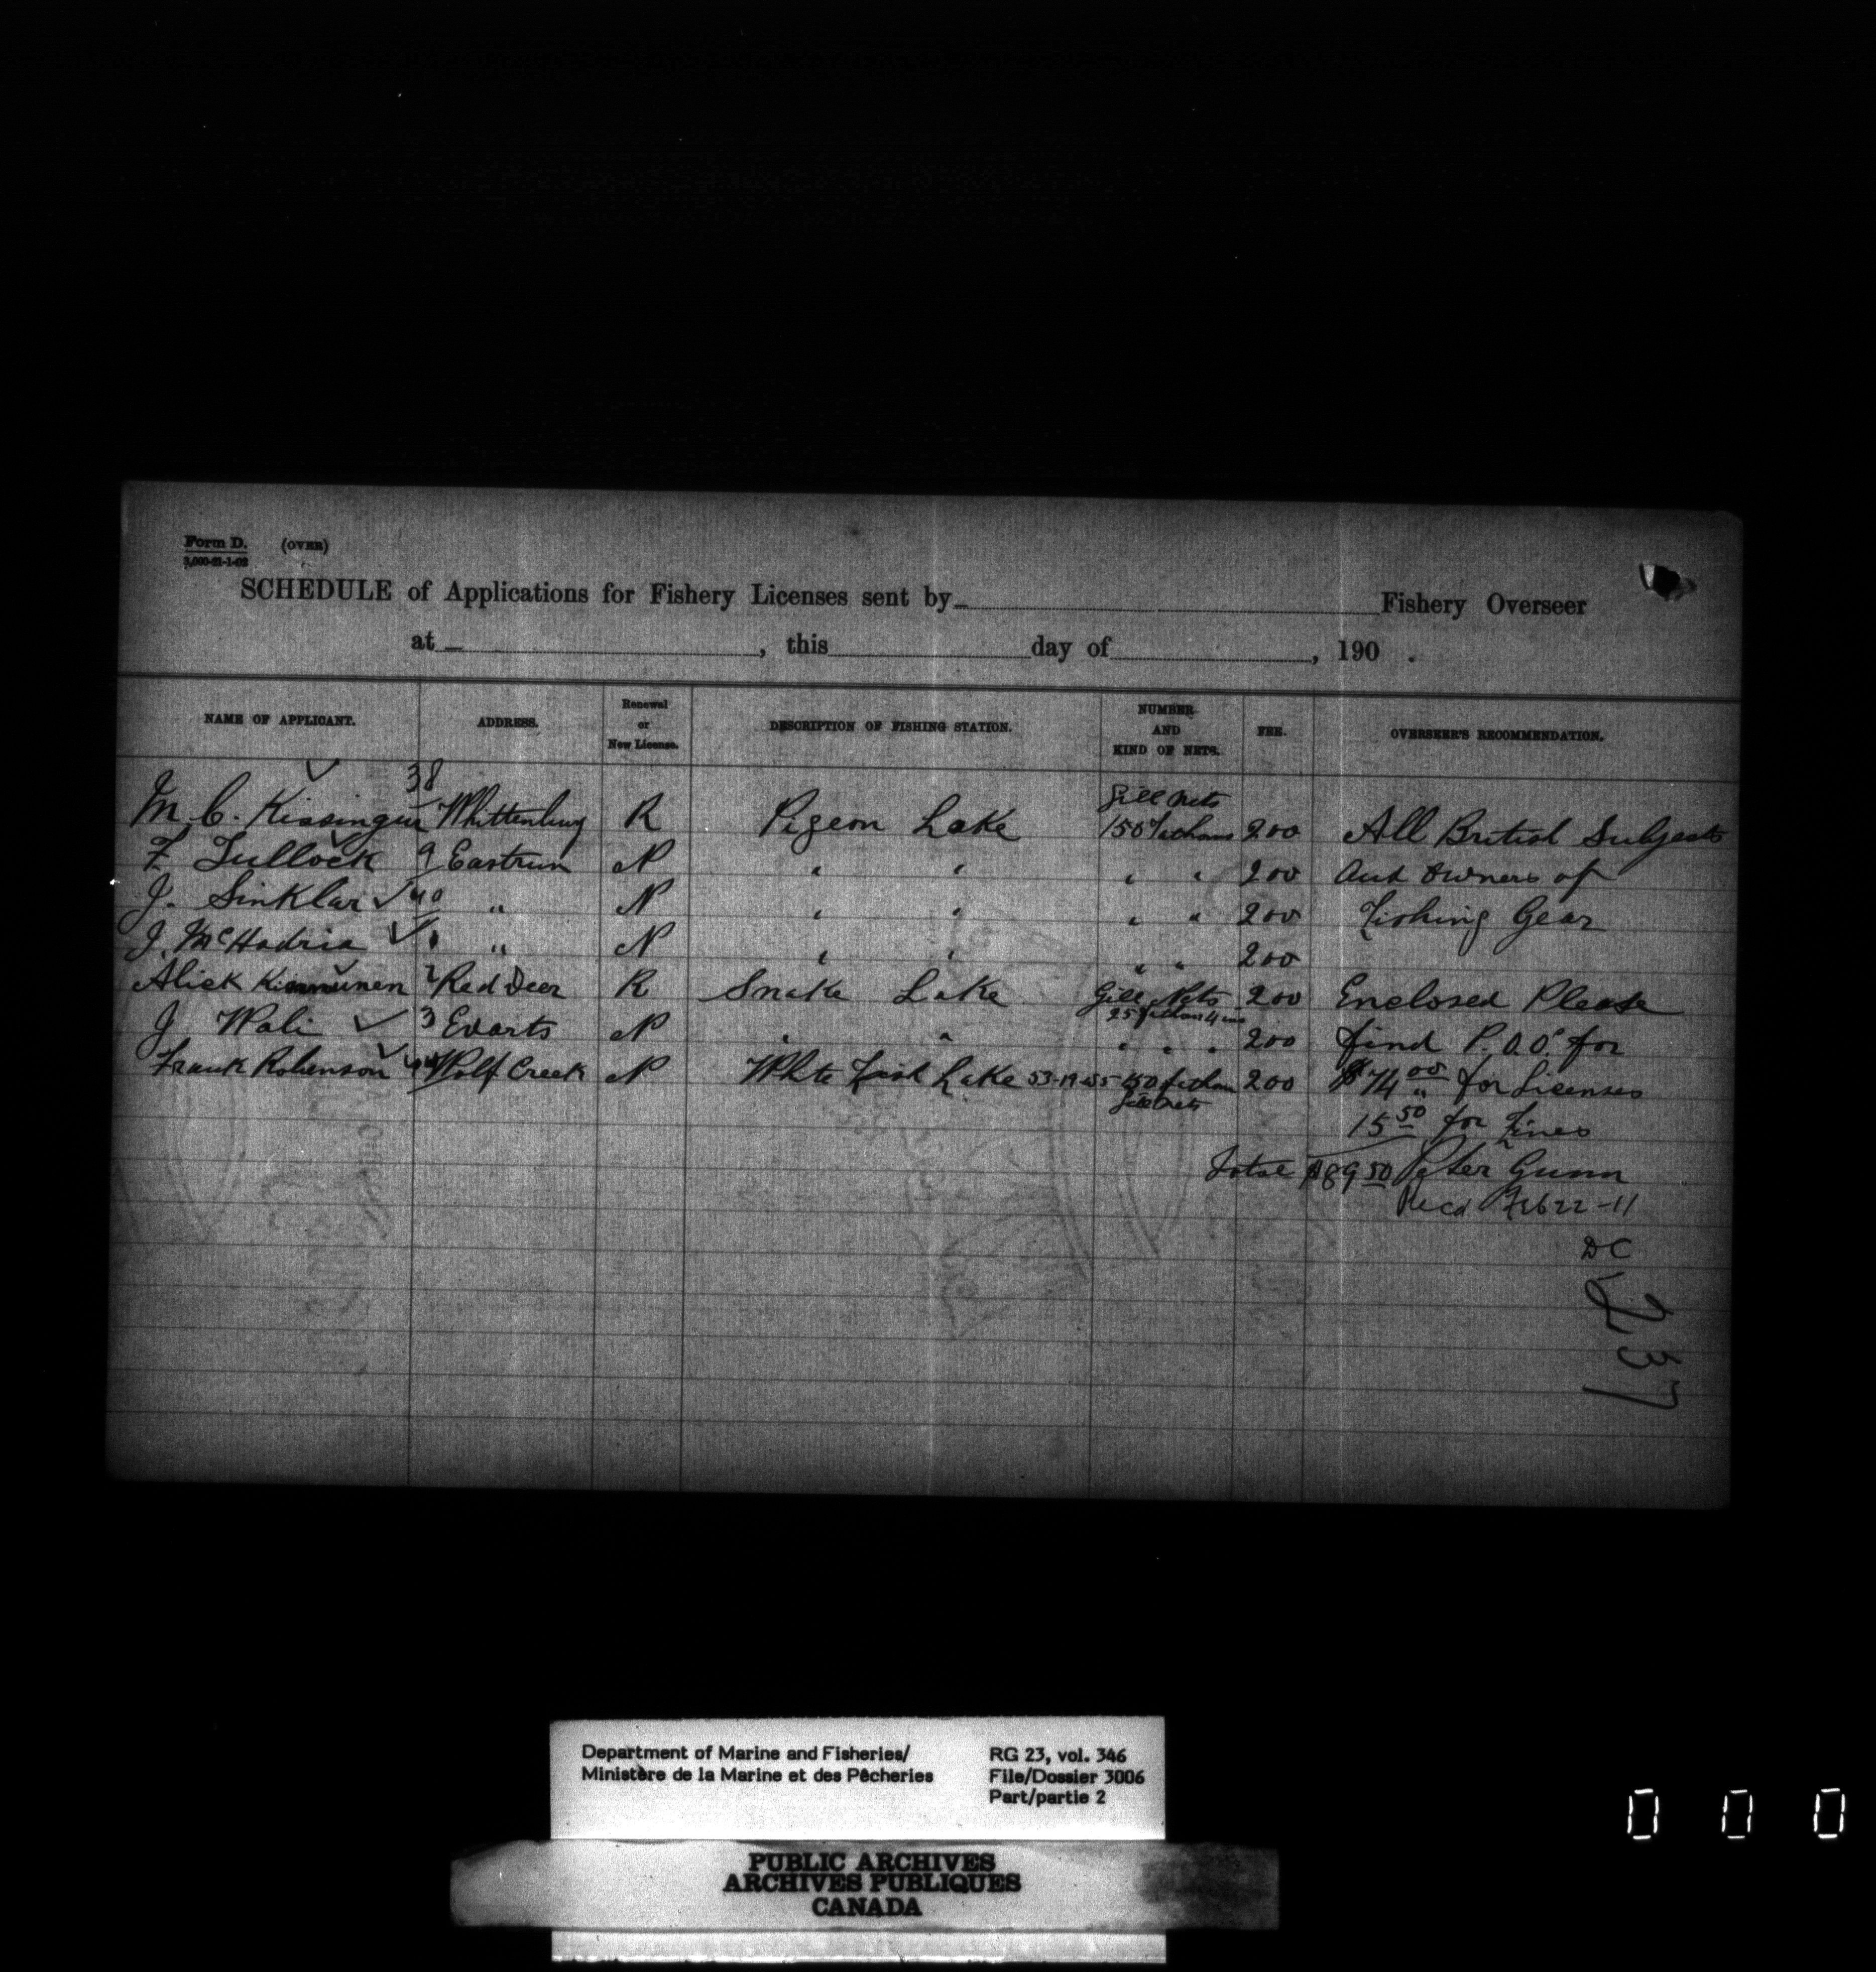 Form D. (OVER)
3,000-21-1-02
SCHEDULE of Applications for Fishery Licenses sent by Fishery Overseer
at , this day of , 190 .
NAME OF APPLICANT. ADDRESS. Renewal or New License. DESCRIPTION OF FISHING STATION. NUMBER AND KIND OF NETS. FEE. OVERSEER'S RECOMMENDATION.
38 Gill Nets
M. C. Kissinger Whittenburg R Pigeon Lake 150 Fathoms 200 All British Subjects
F Tullock 9 Eastrun N " " " " 200 and owners of
J. Sinklar 40 " N " " " " 200 Fishing Gear
J. McHadria 1 " N " " " " 200
Alick Kinnunen 2 Red Deer R Snake Lake Gill Nets 200 Enclosed Please
25 fathom 4 ins
J Wali 3 Evarts N " " " " " 200 find P.O.O. for
Frank Robenson 44 Wolf Creek N White Fish Lake 53-19-w5 150 fathom 200 $74 00 for Licenses
Gill Nets
15 50 for Fines
Total $89 50 Peter Gunn
Recd Feb 22-11
DC
237
Department of Marine and Fisheries/
Ministère de la Marine et des Pêcheries
RG 23, vol. 346
File/Dossier 3006
Part/partie 2
PUBLIC ARCHIVES
ARCHIVES PUBLIQUES
CANADA
0 0 0